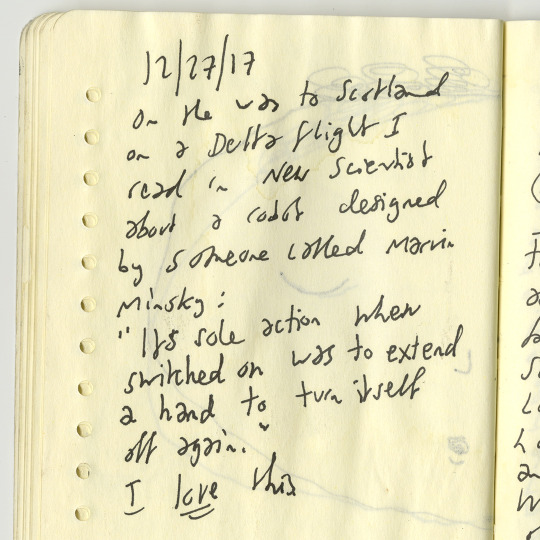 12/27/17
on the way to Scotland
on a Delta flight I
read in New Scientist
about a robot designed
by someone called Marvin
Minsky:
"Its sole action when
switched on was to extend
a hand to turn itself
off again."
I love this